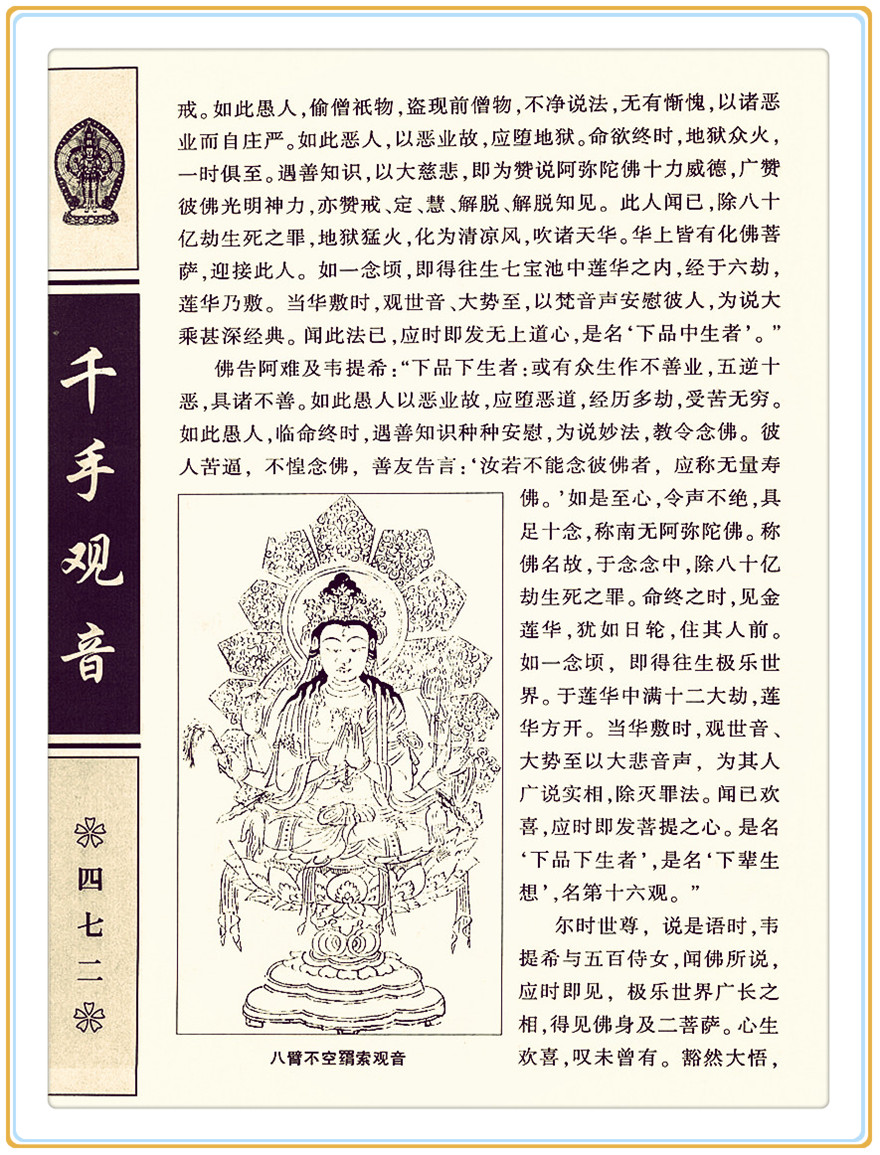 千手观音
四七二
戒。如此愚人，偷僧祇物，盗现前僧物，不净说法，无有惭愧，以诸恶
业而自庄严。如此恶人，以恶业故，应堕地狱。命欲终时，地狱众火，
一时俱至。遇善知识，以大慈悲，即为赞说阿弥陀佛十力威德，广赞
彼佛光明神力，亦赞戒、定、慧、解脱、解脱知见。此人闻已，除八十
亿劫生死之罪，地狱猛火，化为清凉风，吹诸天华。华上皆有化佛菩
萨，迎接此人。如一念顷，即得往生七宝池中莲华之内，经于六劫，
莲华乃敷。当华敷时，观世音、大势至，以梵音声安慰彼人，为说大
乘甚深经典。闻此法已，应时即发无上道心，是名‘下品中生者’。”
佛告阿难及韦提希：“下品下生者：或有众生作不善业，五逆十
恶，具诸不善。如此愚人以恶业故，应堕恶道，经历多劫，受苦无穷。
如此愚人，临命终时，遇善知识种种安慰，为说妙法，教令念佛。彼
人苦逼，不惶念佛，善友告言：‘汝若不能念彼佛者，应称无量寿
佛。’如是至心，令声不绝，具
足十念，称南无阿弥陀佛。称
佛名故，于念念中，除八十亿
劫生死之罪。命终之时，见金
莲华，犹如日轮，住其人前。
如一念顷，即得往生极乐世
界。于莲华中满十二大劫，莲
华方开。当华敷时，观世音、
大势至以大悲音声，为其人
广说实相，除灭罪法。闻已欢
喜，应时即发菩提之心。是名
‘下品下生者’，是名‘下辈生
想’，名第十六观。”
尔时世尊，说是语时，韦
提希与五百侍女，闻佛所说，
应时即见，极乐世界广长之
相，得见佛身及二菩萨。心生
欢喜，叹未曾有。豁然大悟，
八臂不空羂索观音